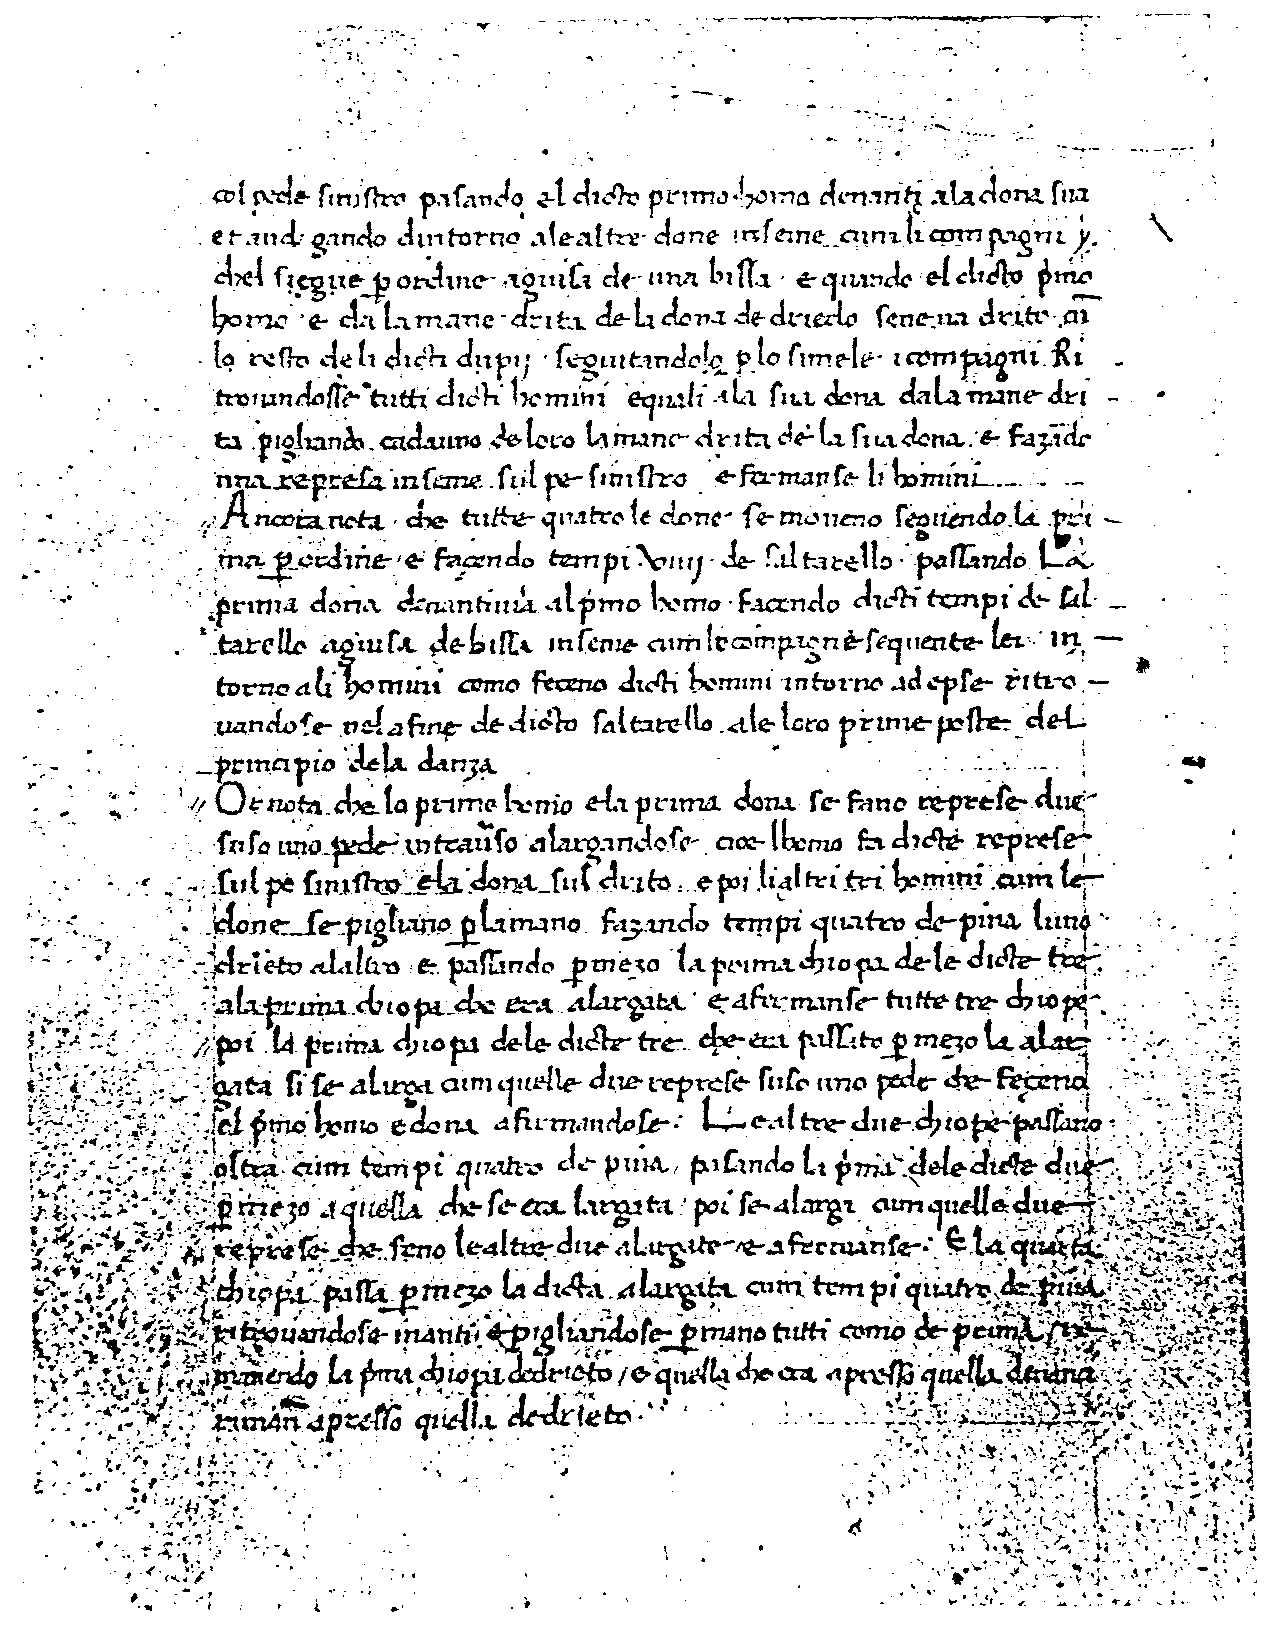 col pede sinistro pasando el dicto primo homo denanti ala dona sua
et andegando dintorno ale altre done inseme cum li compagni
chel siegue ꝑ ordine aguisa de una bissa · e quando el dicto p̄mo
homo · e da la mane drita de la dona de driedo sene ua drito ai
lo resto de li dicti dupij · seguitandolo ꝑ lo simele · i compagni Ri
trouandosse tutti dicti homini equali ala sua dona dala mane dri
ta pigliando cadauno de loro la mane drita de la sua dona · e fazādo
una represa inseme sul pe sinistro e fermanse li homini
// Ancora nota · che tutte quatro le done se moueno seguendo la pri
ma ꝑ ordine · e facendo tempi Xiiij · de saltarello · passando La
prima dona denantiuia al p̄mo homo · facendo dicti tempi de sal
tarello aguisa de bissa inseme cum le compagne sequente lei in
torno ali homini como feceno dicti homini intorno ad epse ritro
uandose nela fine de dicto saltarello ale loro prime poste del
principio dela danza
// Or nota che lo primo homo e la prima dona se fano represe due
suso uno pede in trau̅so alargandose cioe lhomo fa dicte represe
sul pe sinistro e la dona sul drito · e poi li altri tri homini cum le
done se pigliano ꝑ la mano fazando tempi quatro de piua luno
drieto alaltro e passando ꝑ mezo la prima chiopa de le dicte tre
ala prima chiopa che era alargata e afirmanse tutte tre chiope
// poi la prima chiopa de le dicte tre che era passato ꝑ mezo la alar
gata si se alarga cum quelle due represe suso uno pede che feceno
el p̄mo homo e dona afirmandose · Le altre due chiope passano
oltra cum tempi quatro de piua, pasando la p̄ma dele dicte due
ꝑ mezo a quella che se era largata poi se alargi cum quelle due
represe che feno le altre due alargate / e afermanse · E la quarta
chiopa passa ꝑ mezo la dicta alargata cum tempi quatro de piua
ritrouandose inanti e pigliandose ꝑ mano tutti como de prima
manendo la p̄ma chiopa dedrieto / e quella che era apresso quella denanci
riman̄ apresso quella dedrieto ·